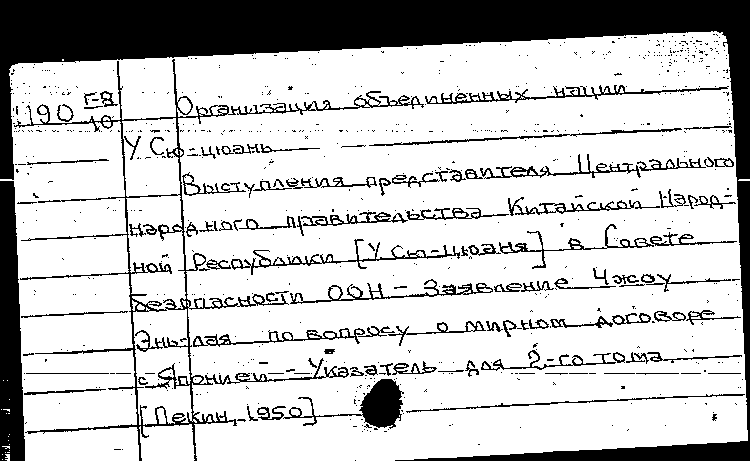 1190 Г-8/10 Организация объединенных наций
У Сю-цюань
Выступления представителя Центрального
народного правительства Китайской Народ-
ной Республики [У Сю-цюаня] в Совете
безопасности ООН - Заявление Чжоу
Энь-лая по вопросу о мирном договоре
с Японией - Указатель для 2-го тома
[Пекин, 1950]